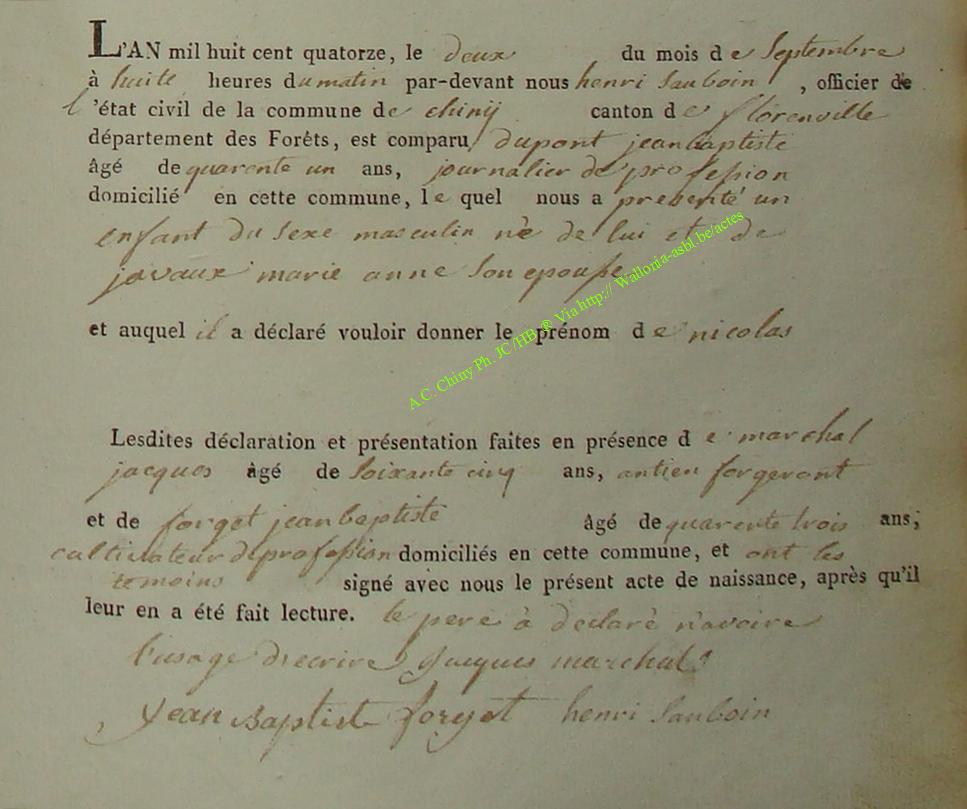 L'AN mil huit cent quatorze, le deux du mois de Septembre
à huite heures du matin par-devant nous henri Sauboin , officier de
l'état civil de la commune de chinij canton de florenville
département des Forêts, est comparu dupont jeanbaptiste
âgé de quarente un ans, journalier de profession
domicilié en cette commune, le quel nous a presenté un
enfant du Sexe masculin nè de lui et de
javaux marie anne Son epouse
et auquel il a déclaré vouloir donner le prénom de nicolas
A.C. Chiny Ph. JC/HB ® Via http:// Wallonia-asbl.be/actes
Lesdites déclaration et présentation faites en présence de marchal
jacques âgé de Soixante cinq ans, antien forgeront
et de forget jeanbaptiste âgé de quarente trois ans,
cultivateur de profession domiciliés en cette commune, et ont les
temoins signé avec nous le présent acte de naissance, après qu'il
leur en a été fait lecture. le pere à declarè n'avoire
l'usage d'ecrire Jacques marchal
Jean Baptist forget henri Sauboin